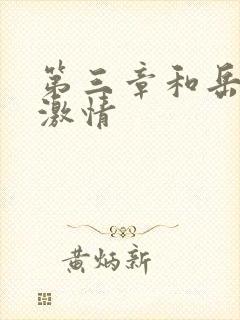 第三章和岳
激情
黄炳新